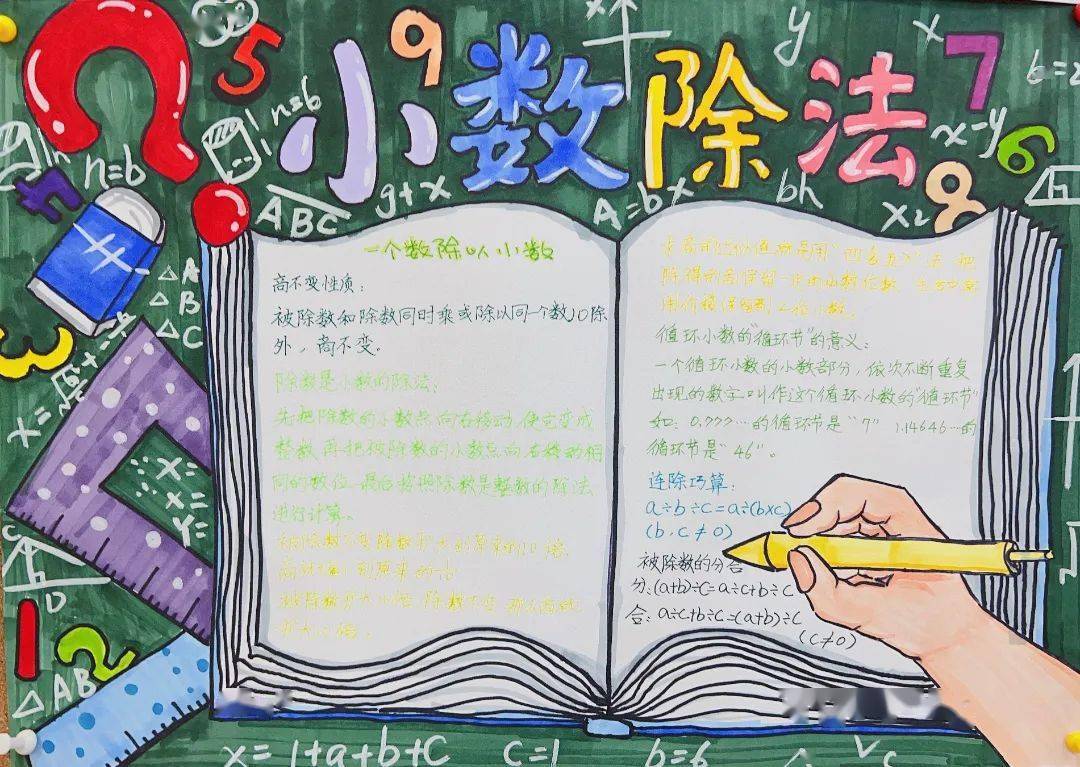 小数除法
5
9
7
6
8
3
1
2
n=b
n=b
ABC
g+x
A=bx
y
bh
x
x-y
x2
△A
△B
△C
x=
x=
Y=
D
△AB
一个数除以小数
商不变性质：
被除数和除数同时乘或除以同一个数,0除
外，商不变。
除数是小数的除法：
先把除数的小数点向右移动,使它变成
整数,再把被除数的小数点向右移动相
同的数位,最后按照除数是整数的除法
进行计算。
被除数不变,除数扩大到原来的10倍,
商 到原来的
被除数扩大 倍,除数不变,那么商就
扩大 倍。
求商的近似值就是用“四舍五入”法,把
除得的商保留一定的小数位数,
用价格保留 小数。
循环小数的“循环节”的意义：
一个循环小数的小数部分，依次不断重复
出现的数字,叫作这个循环小数的“循环节”
如：0.777…的循环节是“7” 1.14646…的
循环节是“46”。
连除巧算：
a÷b÷c=a÷(b×c)
(b,c≠0)
被除数的分合
分:(a+b)÷c=a÷c+b÷c
合：a÷c+b÷c=(a+b)÷c
(c≠0)
x=1+a+b+c
c=1
b=6